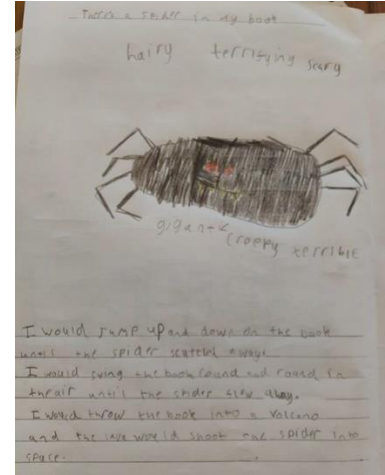 There's a spider in my book
hairy terrifying scary
gigantic creepy terrible
I would jump up and down on the book
until the spider scuttled away.
I would swing the book round and round in
the air until the spider flew away.
I would throw the book into a volcano
and the lava would shoot the spider into
space.